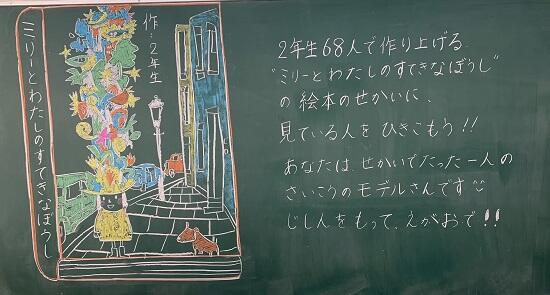 ミリーとわたしのすてきなぼうし
作:2年生
2年生68人で作り上げる
"ミリーとわたしのすてきなぼうし"
の絵本のせかいに、
見ている人をひきこもう!!
あなたは、せかいでたった一人の
さいこうのモデルさんです
じしんをもって、えがおで!!